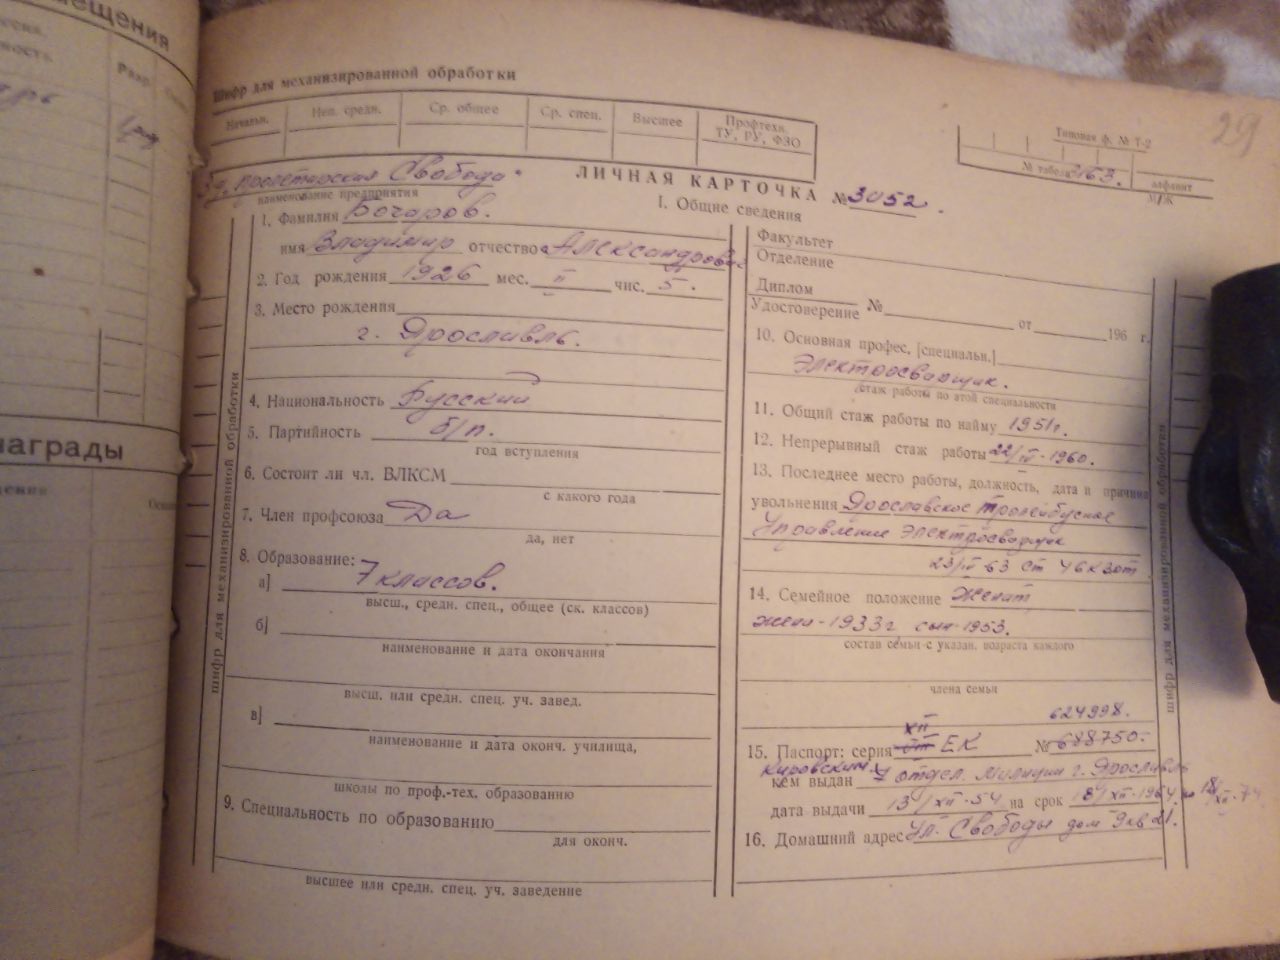 мещения
Разр.
награды
29
Шифр для механизированной обработки
Начальн. Неп. средн. Ср. общее Ср. спец. Высшее Профтехн. ТУ, РУ, ФЗО
Типовая ф. № Т-2
№ табел. 2163. алфавит
М/Ж
З-д „Пролетарская Свобода"
наименование предприятия
ЛИЧНАЯ КАРТОЧКА № 3052.
I. Общие сведения
1. Фамилия Бочаров.
имя Владимир отчество Александрович
2. Год рождения 1926 мес. II чис. 5.
3. Место рождения
г. Ярославль.
4. Национальность Русский
5. Партийность б/п.
год вступления
6. Состоит ли чл. ВЛКСМ
с какого года
7. Член профсоюза Да
да, нет
8. Образование:
а] 7 классов.
высш., средн. спец., общее (ск. классов)
б]
наименование и дата окончания
высш. или средн. спец. уч. завед.
в]
наименование и дата оконч. училища,
школы по проф.-тех. образованию
9. Специальность по образованию
для оконч.
высшее или средн. спец. уч. заведение
шифр для механизированной обработки
Факультет
Отделение
Диплом
Удостоверение № от 196 г.
10. Основная профес. [специальн.]
Электросварщик.
стаж работы по этой специальности
11. Общий стаж работы по найму 1951г.
12. Непрерывный стаж работы 22/IV-1960.
13. Последнее место работы, должность, дата и причина
увольнения Ярославское троллейбусное
Управление электросварщик
23/II 63 ст 46 кзот.
14. Семейное положение Женат
жена-1933г сын-1953.
состав семьи с указан. возраста каждого
члена семьи
XII 624998.
15. Паспорт: серия ЕК № 688750.
Кировским
кем выдан 7 отдел. милиции г. Ярославль
дата выдачи 13/XII-54 на срок 18/XII-1964 18/XII-74
16. Домашний адрес ул. Свободы дом 9 кв 21.
шифр для механизированной обработки